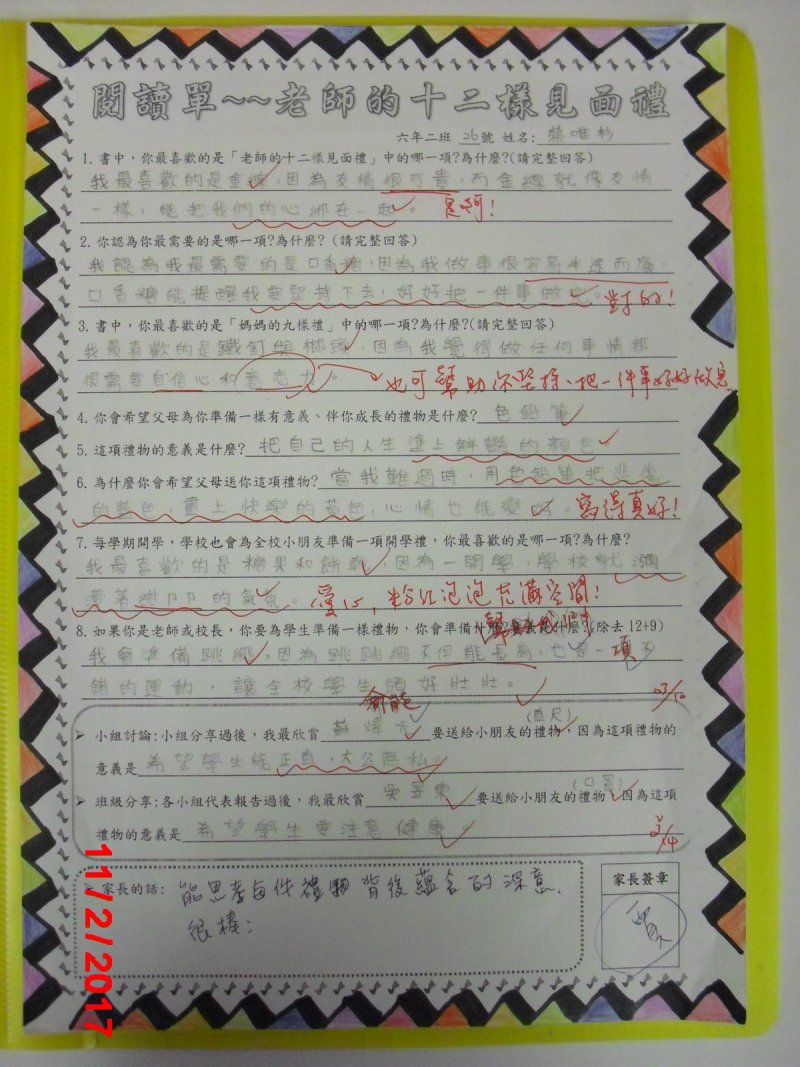 閱讀單~~老師的十二樣見面禮
六年二班 26號 姓名: 蔡唯杉
1. 書中，你最喜歡的是「老師的十二樣見面禮」中的哪一項?為什麼?(請完整回答)
我最喜歡的是金線，因為友情很可貴，而金線就像友情
一樣，能把我們的心綁在一起。 是啊!
2. 你認為你最需要的是哪一項?為什麼? (請完整回答)
我認為我最需要的是口香糖，因為我做事很容易半途而廢，
口香糖能提醒我要堅持下去，好好把一件事做完。對的!
3. 書中，你最喜歡的是「媽媽的九樣禮」中的哪一項?為什麼?(請完整回答)
我最喜歡的是鐵釘與榔頭，因為我覺得做任何事情都
很需要自信心和意志力。 也可幫助你堅持、把一件事好好做完
4. 你會希望父母為你準備一樣有意義、伴你成長的禮物是什麼? 色鉛筆
5. 這項禮物的意義是什麼? 把自己的人生塗上鮮豔的顏色
6. 為什麼你會希望父母送你這項禮物? 當我難過時，用色鉛筆把悲傷
的藍色，畫上快樂的黃色，心情也能變好。寫得真好!
7. 每學期開學，學校也會為全校小朋友準備一項開學禮，你最喜歡的是哪一項?為什麼?
我最喜歡的是糖果和餅乾，因為一開學，學校就瀰
漫著甜的氣氛。 愛心，粉紅泡泡充滿空間!
8. 如果你是老師或校長，你要為學生準備一樣禮物，你會準備什麼?為什麼?(除去 12+9)
我會準備跳繩，因為跳跳繩不但能長高，也是一項不
錯的運動，讓全校學生頭好壯壯。
小組討論:小組分享過後，我最欣賞 蘇煒元 要送給小朋友的禮物(直尺)，因為這項禮物的
意義是 希望學生能正直，大公無私。
班級分享:各小組代表報告過後，我最欣賞 吳昱東 要送給小朋友的禮物(口罩)，因為這項
禮物的意義是 希望學生要注意健康
家長的話: 能思考每件禮物背後蘊含的深意，
很棒!
家長簽章
11/2/2017